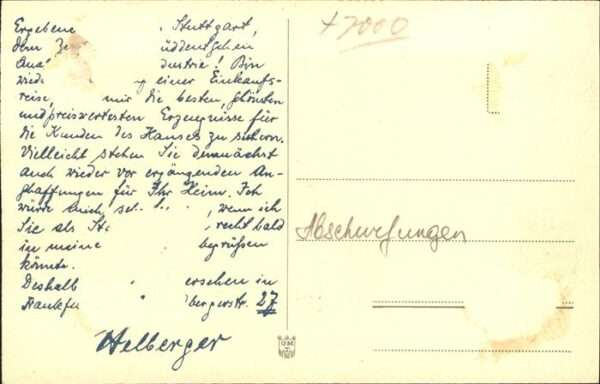 Ergebene Stuttgart,
dem Ze üddeutschen
Aus dustrie! Bin
wied g einer Einkaufs-
reise, mir die besten, schönsten
und preiswertesten Erzeugnisse für
die Kunden des Hauses zu sichern.
Vielleicht stehen Sie demnächst
auch wieder vor ergänzenden An-
schaffungen für Ihr Heim. Ich
würde mich, wenn ich
Sie als St recht bald
in meine begrüßen
könnte.
Deshalb ersehen in
Frankfu bergerstr. 27
Helberger
+7000